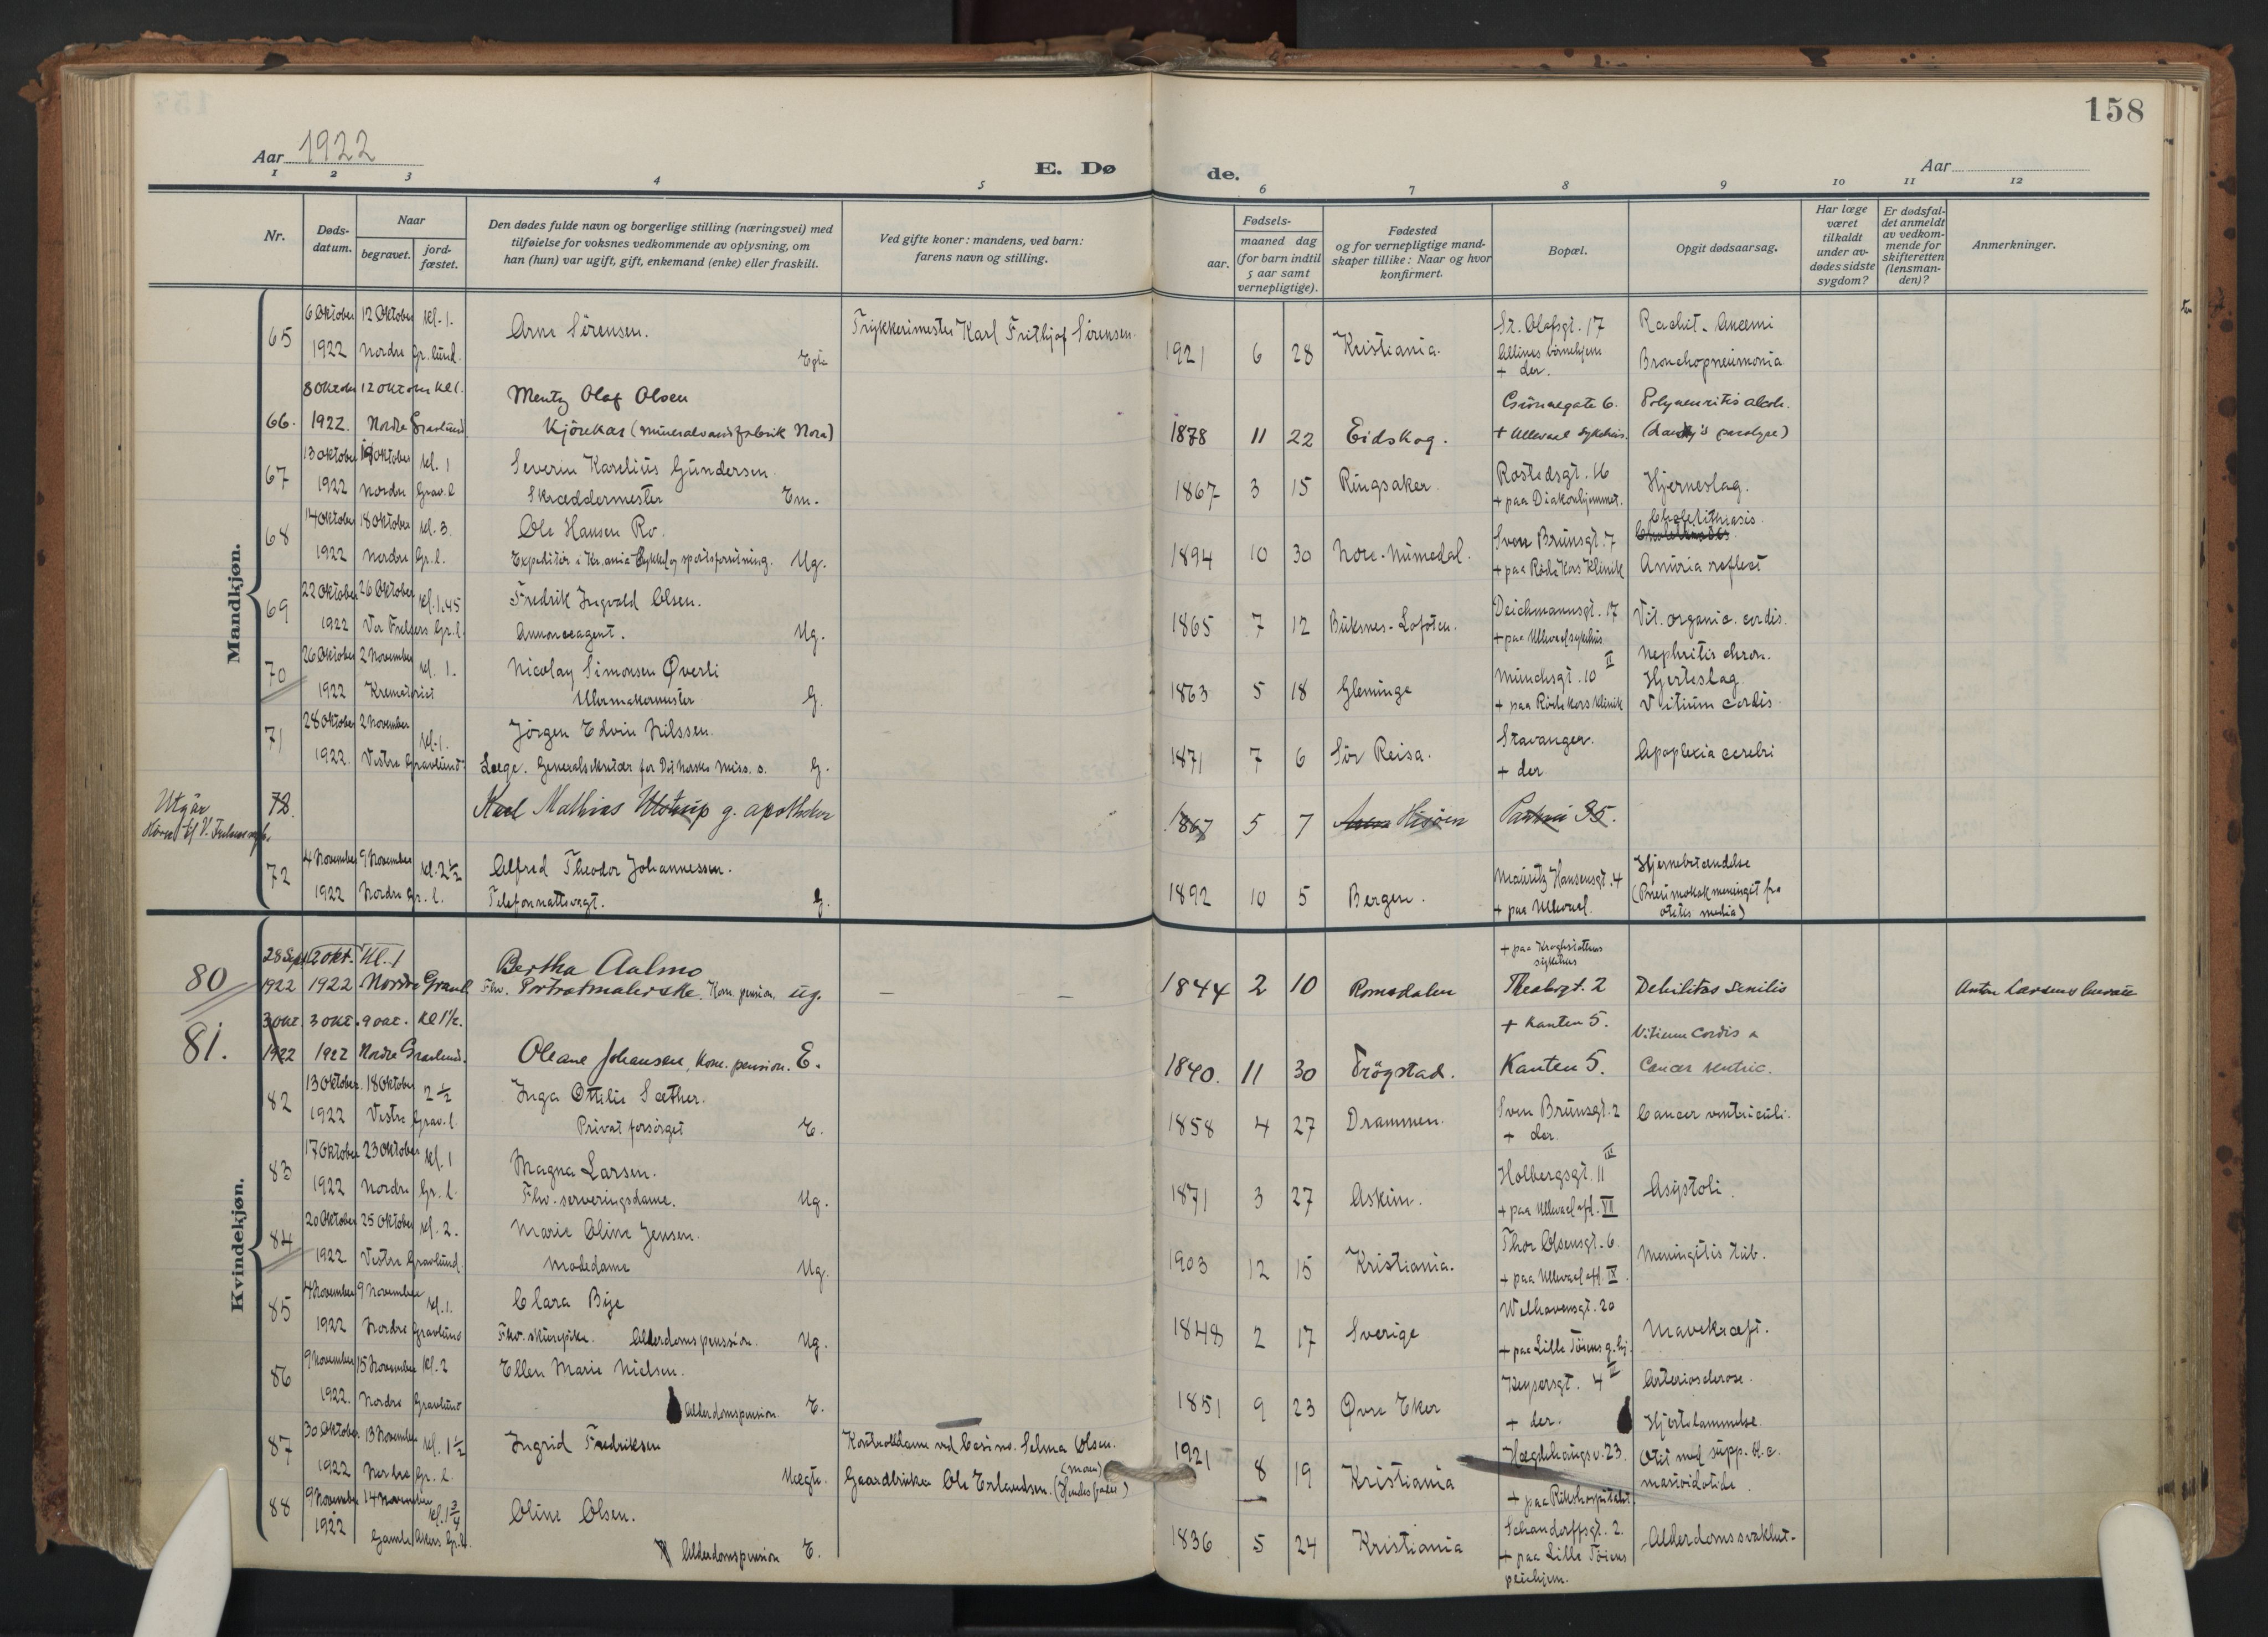 158
Aar 1922
E. Dø de.
Aar
1 2 3 4 5 6 7 8 9 10 11 12
Nr.
Døds-
datum.
Naar
begravet.
jord-
fæstet.
Den dødes fulde navn og borgerlige stilling (næringsvei) med
tilføielse for voksnes vedkommende av oplysning, om
han (hun) var ugift, gift, enkemand (enke) eller fraskilt.
Ved gifte koner: mandens, ved barn:
farens navn og stilling.
Fødsels-
aar.
maaned dag
(for barn indtil
5 aar samt
vernepligtige).
Fødested
og for vernepligtige mand-
skaper tillike: Naar og hvor
konfirmert.
Bopæl.
Opgit dødsaarsag.
Har læge
været
tilkaldt
under av-
dødes sidste
sygdom?
Er dødsfal-
det anmeldt
av vedkom-
mende for
skifteretten
(lensman-
den)?
Anmerkninger.
Mandkjøn.
65 6 Oktober 12 Oktober kl. 1. Arne Sörensen. Trykkerimester Karl Frithjof Sörensen. St. Olafsgt. 17 Rachit. Anemi
1922 Nordre Gr.lund. Egte 1921 6 28 Kristiania. börnehjem Bronchopneumonia
+ der.
8 Oktober 12 Oktober Kl 1. Mentz Olaf Olsen Polyneuritis alcoh.
66. 1922. Nordre Gravlund Kjörekar (mineralvandsfabrik Nora) 1878 11 22 Eidskog. + Ullevaal sykehus.
67 13 Oktober Oktober kl. 1 Severin Karelius Gundersen. Rostedsgt. 16
1922 Nordre Grav.l Skræddermester Em. 1867 3 15 Ringsaker. + paa Diakonhjemmet. Hjerneslag.
68 14 Oktober 18 Oktober kl. 3. Ole Hansen Ro. Sven Brunsgt. 7 Cholelithiasis.
1922 Nordre Gr. l. Ekspeditör i Kr.ania Cykkel og sportsforretning. Ug. 1894 10 30 Nore - Numedal. + paa Röde Kors Klinik Anuria reflect
69 22 Oktober 26 Oktober kl. 1.45 Fredrik Ingvald Olsen. Deichmannsgt. 17
1922 Vor Frelsers Gr.l. Annonceagent. Ug. 1865 7 12 Buksnes - Lofoten. + paa Ullevaal sykehus Vit. organic. cordis.
Nephritis chron.
70 26 Oktober 2 November kl. 1. Nicolay Simonsen Øverli Munchsgt. 10 II Hjerteslag.
1922 Krematoriet Uhrmakermester G. 1863 5 18 Gleminge + paa Röde Kors Klinik Vitium cordis.
71 28 Oktober 2 November kl. 1. Jörgen Edvin Nilssen. Stavanger.
1922. Vestre Gravlund. Læge. Generalsekretær for Det Norske Miss. s. G. 1871 7 6 Sör Reisa. + der Apoplexia cerebri
Utgår
72. Karl Mathias g. apotheker 1867 5 7 Hisöen Parkvei 35.
72 4 November 9 November kl. 2½ Alfred Theodor Johannessen. Mauritz Hansensgt. 4 Hjernebetændelse
1922 Nordre Gr. l. Telefonnattvagt. G. 1892 10 5 Bergen. + paa Ullevaal. (Pneumokok meningit fra
otitis media)
Kvindekjøn.
28 Sept 2 okt. Kl. 1 Bertha Aalmo + paa Kroghstöttens
sykehus
80 1922 1922 Nordre Gravl. Fhv. Portrætmalerske. Kom. pension. ug. — — 1844 2 10 Romsdalen Theatergt. 2 Debilitas senilis Anton Larsens
3 okt. 3 okt. 9 okt. Kl 1½. + Kanten 5. Vitium Cordis &
81. 1922 1922 Nordre Gravlund. Oleane Johansen, Kom. pension. E. 1840. 11 30 Trögstad. Kanten 5. Cancer ventric.
82 13 Oktober. 18 Oktober 2½ Inga Ottilie Sæther. Sven Brunsgt. 2
1922 Vestre Grav. l. Privat forsörget E. 1858 4 27 Drammen. + der. Cancer ventriculi.
83 17 Oktober 23 Oktober kl. 1 Magna Larsen. Holbergsgt. 11 III
1922 Nordre Gr. l. Fhv. serveringsdame. Ug. 1871 3 27 Askim. + paa Ullevaal afd. VII Asystoli.
84 20 Oktober 25 Oktober kl. 2. Marie Oline Jensen. Thor Olsensgt. 6.
1922 Vestre Gravlund. Modedame Ug. 1903 12 15 Kristiania. + paa Ullevaal afd. IX. Meningitis tub.
85 4 November 9 November kl. 1. Clara Bye Welhavensgt. 20
1922 Nordre Gravlund Fhv. Alderdomspenssion. Ug. 1848 2 17 Sverige + paa Lille Töiens g.hj. Mavekræft.
86 9 November 15 November Kl. 2 Ellen Marie Nielsen. Keysersgt. 4 III Arteriosclerose.
1922. Nordre Gravlund Alderdomspension E. 1851 9 23 Øvre Eker + der. Hjertelammelse.
87 30 Oktober. 13 November kl. 1½ Ingrid Fredriksen Kontroldame ved Casino. Selma Olsen. (mor) Hægdehaugsv. 23. Otit med supp. K.c.
1922 Nordre Gr. l. Uægte. Gaardbruker Ole Erlandsen. (Hendes fader) 1921 8 19 Kristiania + paa Rikshospitalet. mastoidotide.
88 9 November 14 November kl. 1¾ Oline Olsen. Schandorffsgt. 2.
1922 Gamle Akers Gr.l. Alderdomspension E. 1836 5 24 Kristiania + paa Lille Töiens Alderdomssvakhet.
pleiehjem.